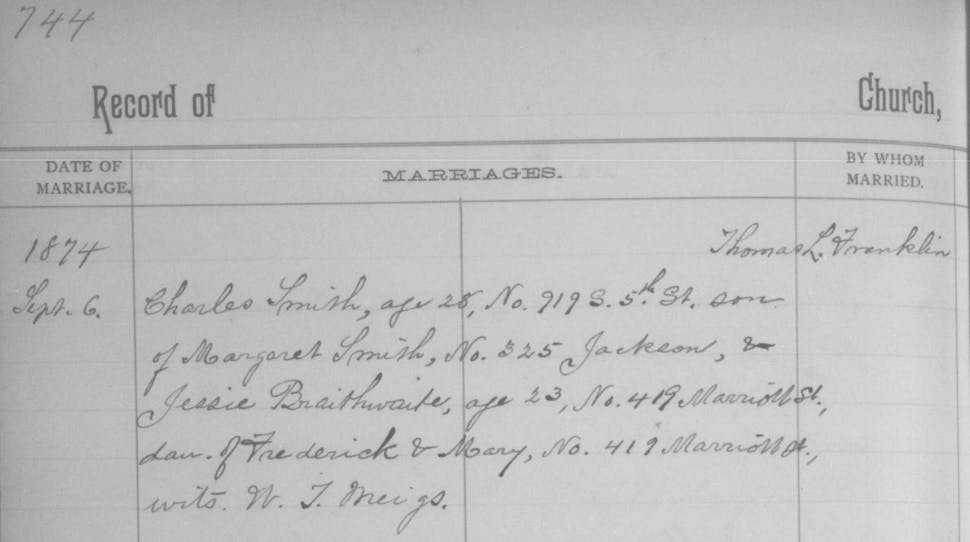 744
Record of Church,
DATE OF MARRIAGE. MARRIAGES. BY WHOM MARRIED.
1874 Thomas L. Franklin
Sept. 6. Charles Smith, age 28, No. 919 S. 5th St. son
of Margaret Smith, No. 325 Jackson, &
Jessie Braithwaite, age 23, No. 419 Marriott St.,
dau. of Frederick & Mary, No. 419 Marriott St.,
wits. W. T. Meigs.